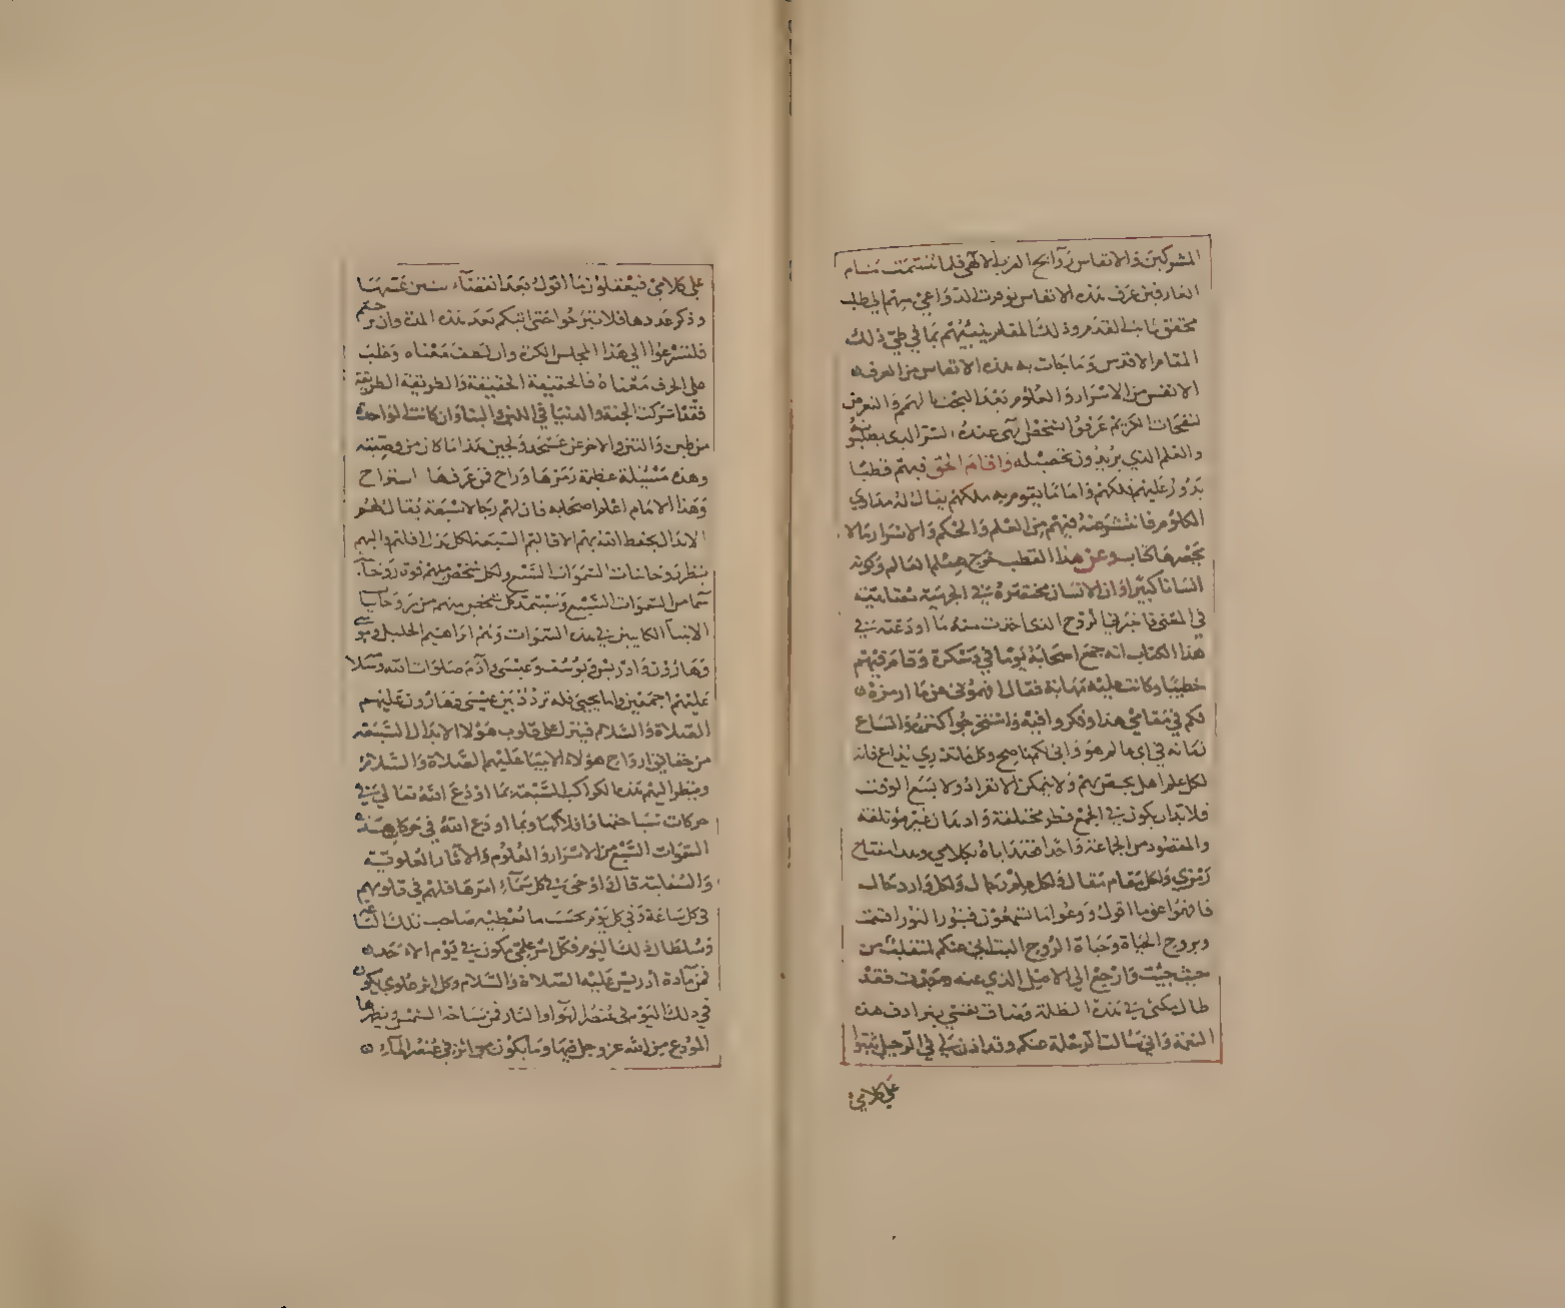 المشركين والانفاس روايح القرب الالهى فلما تنسمت مشام
العارفين عرف هذه الانفاس توفرت الدواعى منهم الى طلب
محقق ثابت القدم وذلك المقام ينبيهم بما في طي ذلك
المقام الاقدس وما جات به هذه الانفاس من العرف
الانفس من الاسرار والعلوم بعد البحث بالهمم والتعرض
لنفحات الكريم عرفوا بشخص الهى عنده السر الذى يطلبونه
والعلم الذي يريدون تحصيله واقامه الحق فيهم قطبا
يدور عليه فلكهم واماما يقوم به ملكهم يقال له مداوي
الكلوم فانتشر عنه فيهم من العلم والحكم والاسرار مالا
يحصرها كتاب وعن هذا القطب خرج علم العالم وكونه
انسانا كبيرا وان الانسان مختصره في الجرمية مضاهيه
في المعنى فاخبرني الروح الذى اخذت منه ما اودعته في
هذا الكتاب انه جمع اصحابه يوما في دسكرة وقام فيهم
خطيبا وكانت عليه مهابة فقال افهموا عنى ما ارمزه
لكم في مقامي هذا وفكروا فيه واستخرجوا كنزه واتساع
زمانه في اي عالم هو واني لكم ناصح وكل ما تدري يذاع فانه
لكل علم اهل يختص بهم ولا يتمكن الانفراد ولا يسع الوقت
فلا بد ان يكون في الجمع فطر مختلفة واذهان غير مؤتلفة
والمقصود من الجماعة واحد اياه اقصد بكلامي وبيده مفتاح
رمزي ولكل مقام مقال ولكل علم رجال ولكل وارد حال
فافهموا عني ما اقول وعوا ما تسمعون فبنور النور اقسمت
وبروح الحياة وحياة الروح اليت اني عنكم لمنقلب من
حيث جيت وراجع الى الاصل الذي عنه وجدت فقد
طال مكثى في هذه الظلمة وضاق نفسي بترادف هذه
الغمة واني سالت الرحلة عنكم وقد اذن لي في الرحيل فاثبتوا
على كلامي
على كلامي فتعقلون ما اقول بعد انقضاء سنين عينها
وذكر عددها فلا تبرحوا حتى اتيكم بعد هذه المدة وان برحتم
فلتسرعوا الى هذا المجلس الكرة وان لطف مغناه وغلب
على الحرف معناه فالحقيقة الحقيقة والطريقة الطريقة
فقد اشتركت الجنة والدنيا في اللبن والبنا وان كانت الواحدة
من طين والتبن والاخرى من عسجد ولجين هذا ما كان من وصيته
وهذه مسئلة عظيمة رمزها وراح فمن عرفها استراح
وهذا الامام اعلم اصحابه فان لهم رجالا سبعة يقال لهم
الابدال يحفظ الله بهم الاقاليم السبعة لكل بدل اقليم واليهم
ينظر روحانيات السموات السبع ولكل شخص منهم قوة روحا
سما من السموات السبع ويستمد كل شخص منهم من روحانيا
الانبيا الكاينين في هذه السموات وهم ابراهيم الخليل وموسى
وهارون وادريس ويوسف وعيسى وادم صلوات الله وسلا
عليهم اجمعين واما يحيى فله تردد بين عيسى وهارون عليهم
الصلاة والسلام فينزل على قلوب هولاء الابدال السبعة
من حقايق ارواح هؤلاء الانبيا عليهم الصلاة والسلام
وينظر اليهم هذه الكواكب السبعة بما اودع الله تعالى في
حركات سباحتها وافلاكها وبما اودع الله في حركات هذه
السموات السبع من الاسرار والعلوم والاثار العلوية
والسفلية قال واوحى في كل سماء امرها فلهم في قلوبهم
في كل ساعة وفي كل يوم بحسب ما تعطيه صاحب تلك الساعة
وسلطان ذلك اليوم فكل امر علمي يكون في يوم الاحد
فمن مادة ادريس عليه الصلاة والسلام وكل اثر علوي يكون
في ذلك اليوم في عنصر الهواء والنار فمن سباحة الشمس ونظرها
المودع من الله عز وجل فيها وما يكون من اثر في عنصر الماء